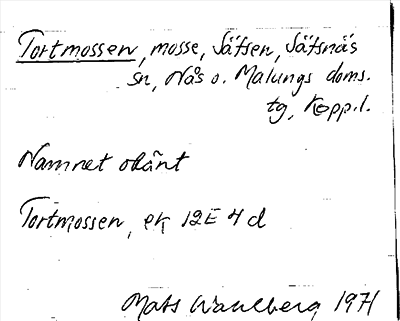 Tortmossen, mosse, Säfsen, Säfsnäs
sn, Nås o. Malungs doms.
tg, Kopp.l.
Namnet okänt
Tortmossen, ek 12E 4 d
Mats Wahlberg 1971